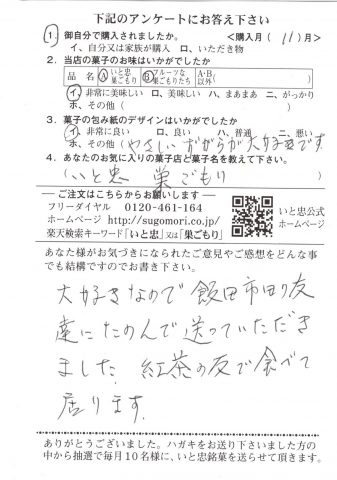 下記のアンケートにお答え下さい
1. 御自分で購入されましたか。 <購入月( 11 )月>
イ、自分又は家族が購入 ロ、いただき物
2. 当店の菓子のお味はいかがでしたか
品 名 Ⓐいと忠巣ごもり Ⓑフルーツな巣ごもりたち A・B以外( )
イ、非常に美味しい ロ、美味しい ハ、まあまあ ニ、がっかり
ホ、その他 ( )
3. 菓子の包み紙のデザインはいかがでしたか
イ、非常に良い ロ、良い ハ、普通 ニ、悪い
ホ、その他 ( やさしい おがらが大好きです
4. あなたのお気に入りの菓子店と菓子名を教えて下さい。
(いと忠 巣ごもり )
―ご注文はこちらからお願いします―
フリーダイヤル 0120-461-164
ホームページ http://sugomori.co.jp/
楽天検索キーワード「いと忠」又は「巣ごもり」
いと忠公式
ホームページ
あなた様がお気づきになられたご意見やご感想をどんな事
でも結構ですのでお書き下さい。
大好きなので飯田市田の友
達にたのんで送っていただき
ました。紅茶の友で食べて
居ります。
ありがとうございました。ハガキをお送り下さいました方の
中から抽選で毎月10名様に、いと忠銘菓を送らせて頂きます。